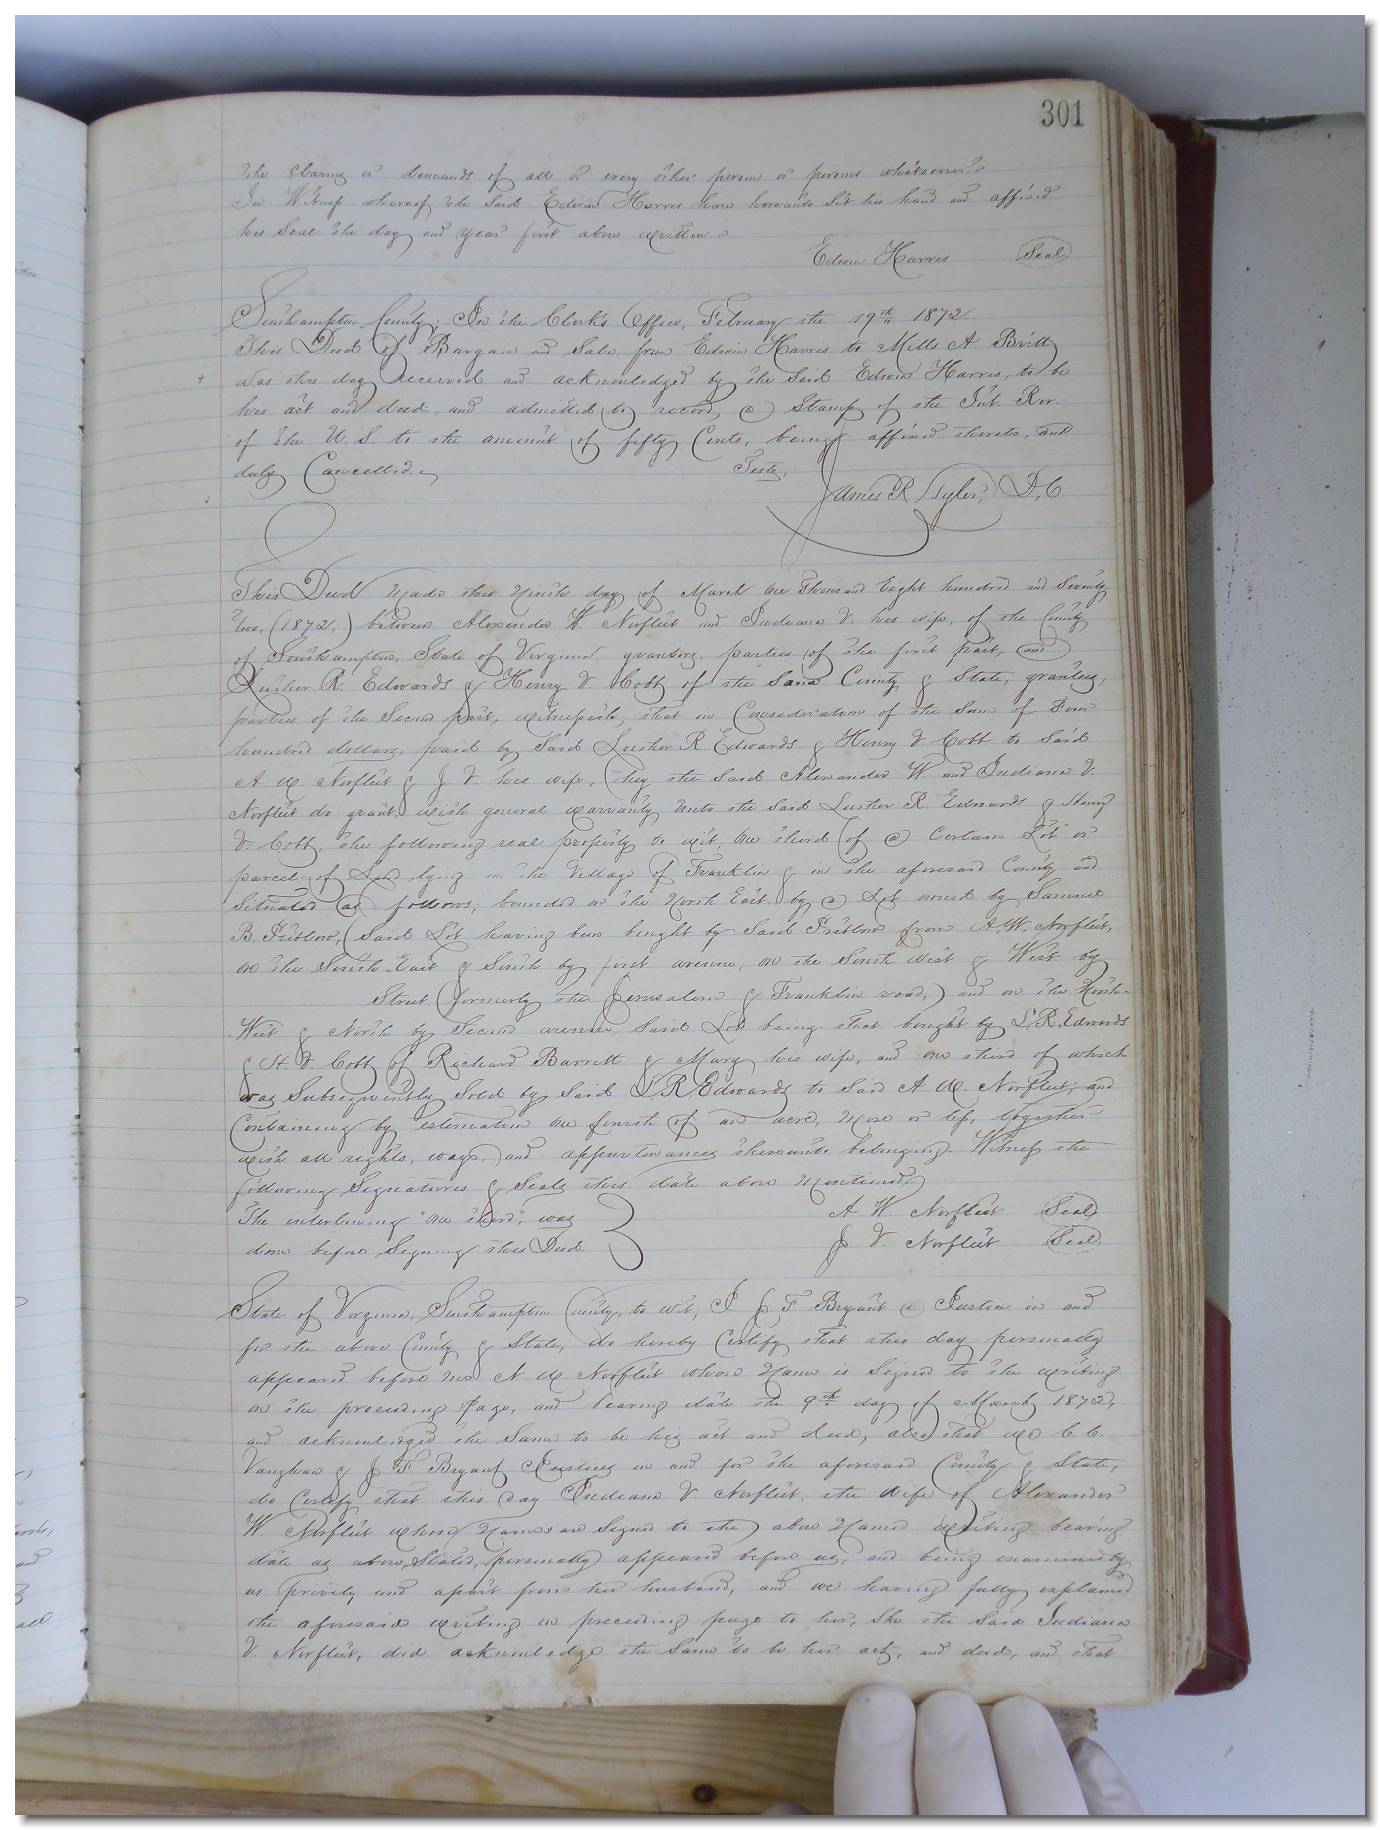 301
the claims or demands of all & every other person or persons whatsoever.
In Witness whereof the said Edwin Harris have hereunto set his hand and affixed
his seal the day and year first above written.
Edwin Harris Seal
Southampton County; In the Clerk's Office, February the 19th 1872.
This Deed of Bargain and Sale from Edwin Harris to Mills A Britt
was this day received and acknowledged by the said Edwin Harris, to be
his act and deed, and admitted to record, a Stamp of the Int. Rev.
of the U.S. to the amount of fifty Cents, being affixed thereto, and
duly Cancelled.
Teste,
James R Tyler, D.C
This Deed made this Ninth day of March One Thousand Eight hundred and Seventy
two, (1872,) between Alexander W. Norfleet and Indiana V. his wife, of the County
of Southampton, State of Virginia, grantors, parties of the first part, and
Luther R. Edwards & Henry V. Cobb of the said County & State, grantees,
parties of the Second part, witnesseth, that in Consideration of the Sum of Four
hundred dollars, paid by Said Luther R Edwards & Henry V. Cobb to Said
A. W. Norfleet & J. V. his wife, they the Said Alexander W and Indiana V.
Norfleet do grant, with general warranty unto the said Luther R. Edwards & Henry
V. Cobb, the following real property to wit, One third of a Certain Lot or
parcel of Land lying in the Village of Franklin & in the aforesaid County and
Situated as follows; bounded on the North East by a Lot owned by Samuel
B. Pretlow, (Said Lot having been bought by Said Pretlow from A. W. Norfleet,
on the South East & South by first avenue, on the South West & West by
Street (formerly the Jerusalem & Franklin road,) and on the North-
West & North by Second avenue, Said Lot being that bought by L. R. Edwards
& H. V. Cobb of Richard Barrett & Mary his wife, and one third of which
was Subsequently Sold by Said L. R. Edwards to Said A. W. Norfleet; and
Containing by estimation One fourth of an acre, more or less, together
with all rights, ways, and appurtenances thereunto belonging. Witness the
following Signatures & Seals this date above Mentioned,
The interlining "One third", was
done before Signing this Deed.
A W Norfleet Seal
J. V. Norfleet Seal
State of Virginia, Southampton County, to wit, I J. F. Bryant a Justice in and
for the above County & State, do hereby Certify that this day personally
appeared before me A. W. Norfleet whose Name is Signed to the writing
on the preceeding page, and bearing date the 9th day of March 1872,
and acknowledged the Same to be his act and deed, also that we C. C.
Vaughan & J. F. Bryant Justices in and for the aforesaid County & State,
do Certify that this day Indiana V. Norfleet, the Wife of Alexander
W Norfleet whose Names are Signed to the above Named Writing bearing
date as above Stated, personally appeared before us, and being examined by
us privily and apart from her husband, and we having fully explained
the aforesaid writing on preceding page to her, She the Said Indiana
V. Norfleet, did acknowledge the Same to be her act, and deed, and that